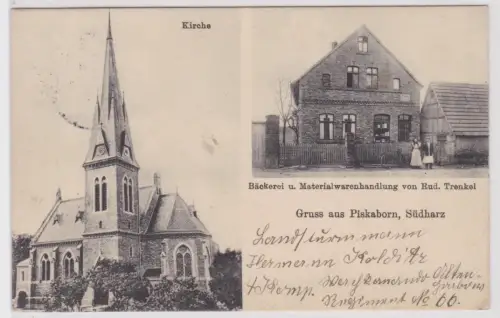 Kirche
Bäckerei u. Materialwarenhandlung von Rud. Trenkel
Gruss aus Piskaborn, Südharz
Landsturmmann
Hermann Kolditz
4 Komp.
Regiment No 66.